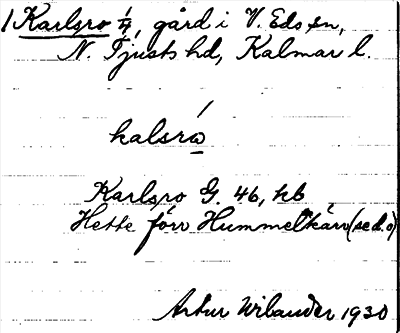 1 Karlsro 1/4, gård i V. Eds sn,
N. Tjusts hd, Kalmar l.
kalsró
Karlsro G. 46, hb
Hette förr Hummelkärr (se d. o)
Artur Wilander 1930